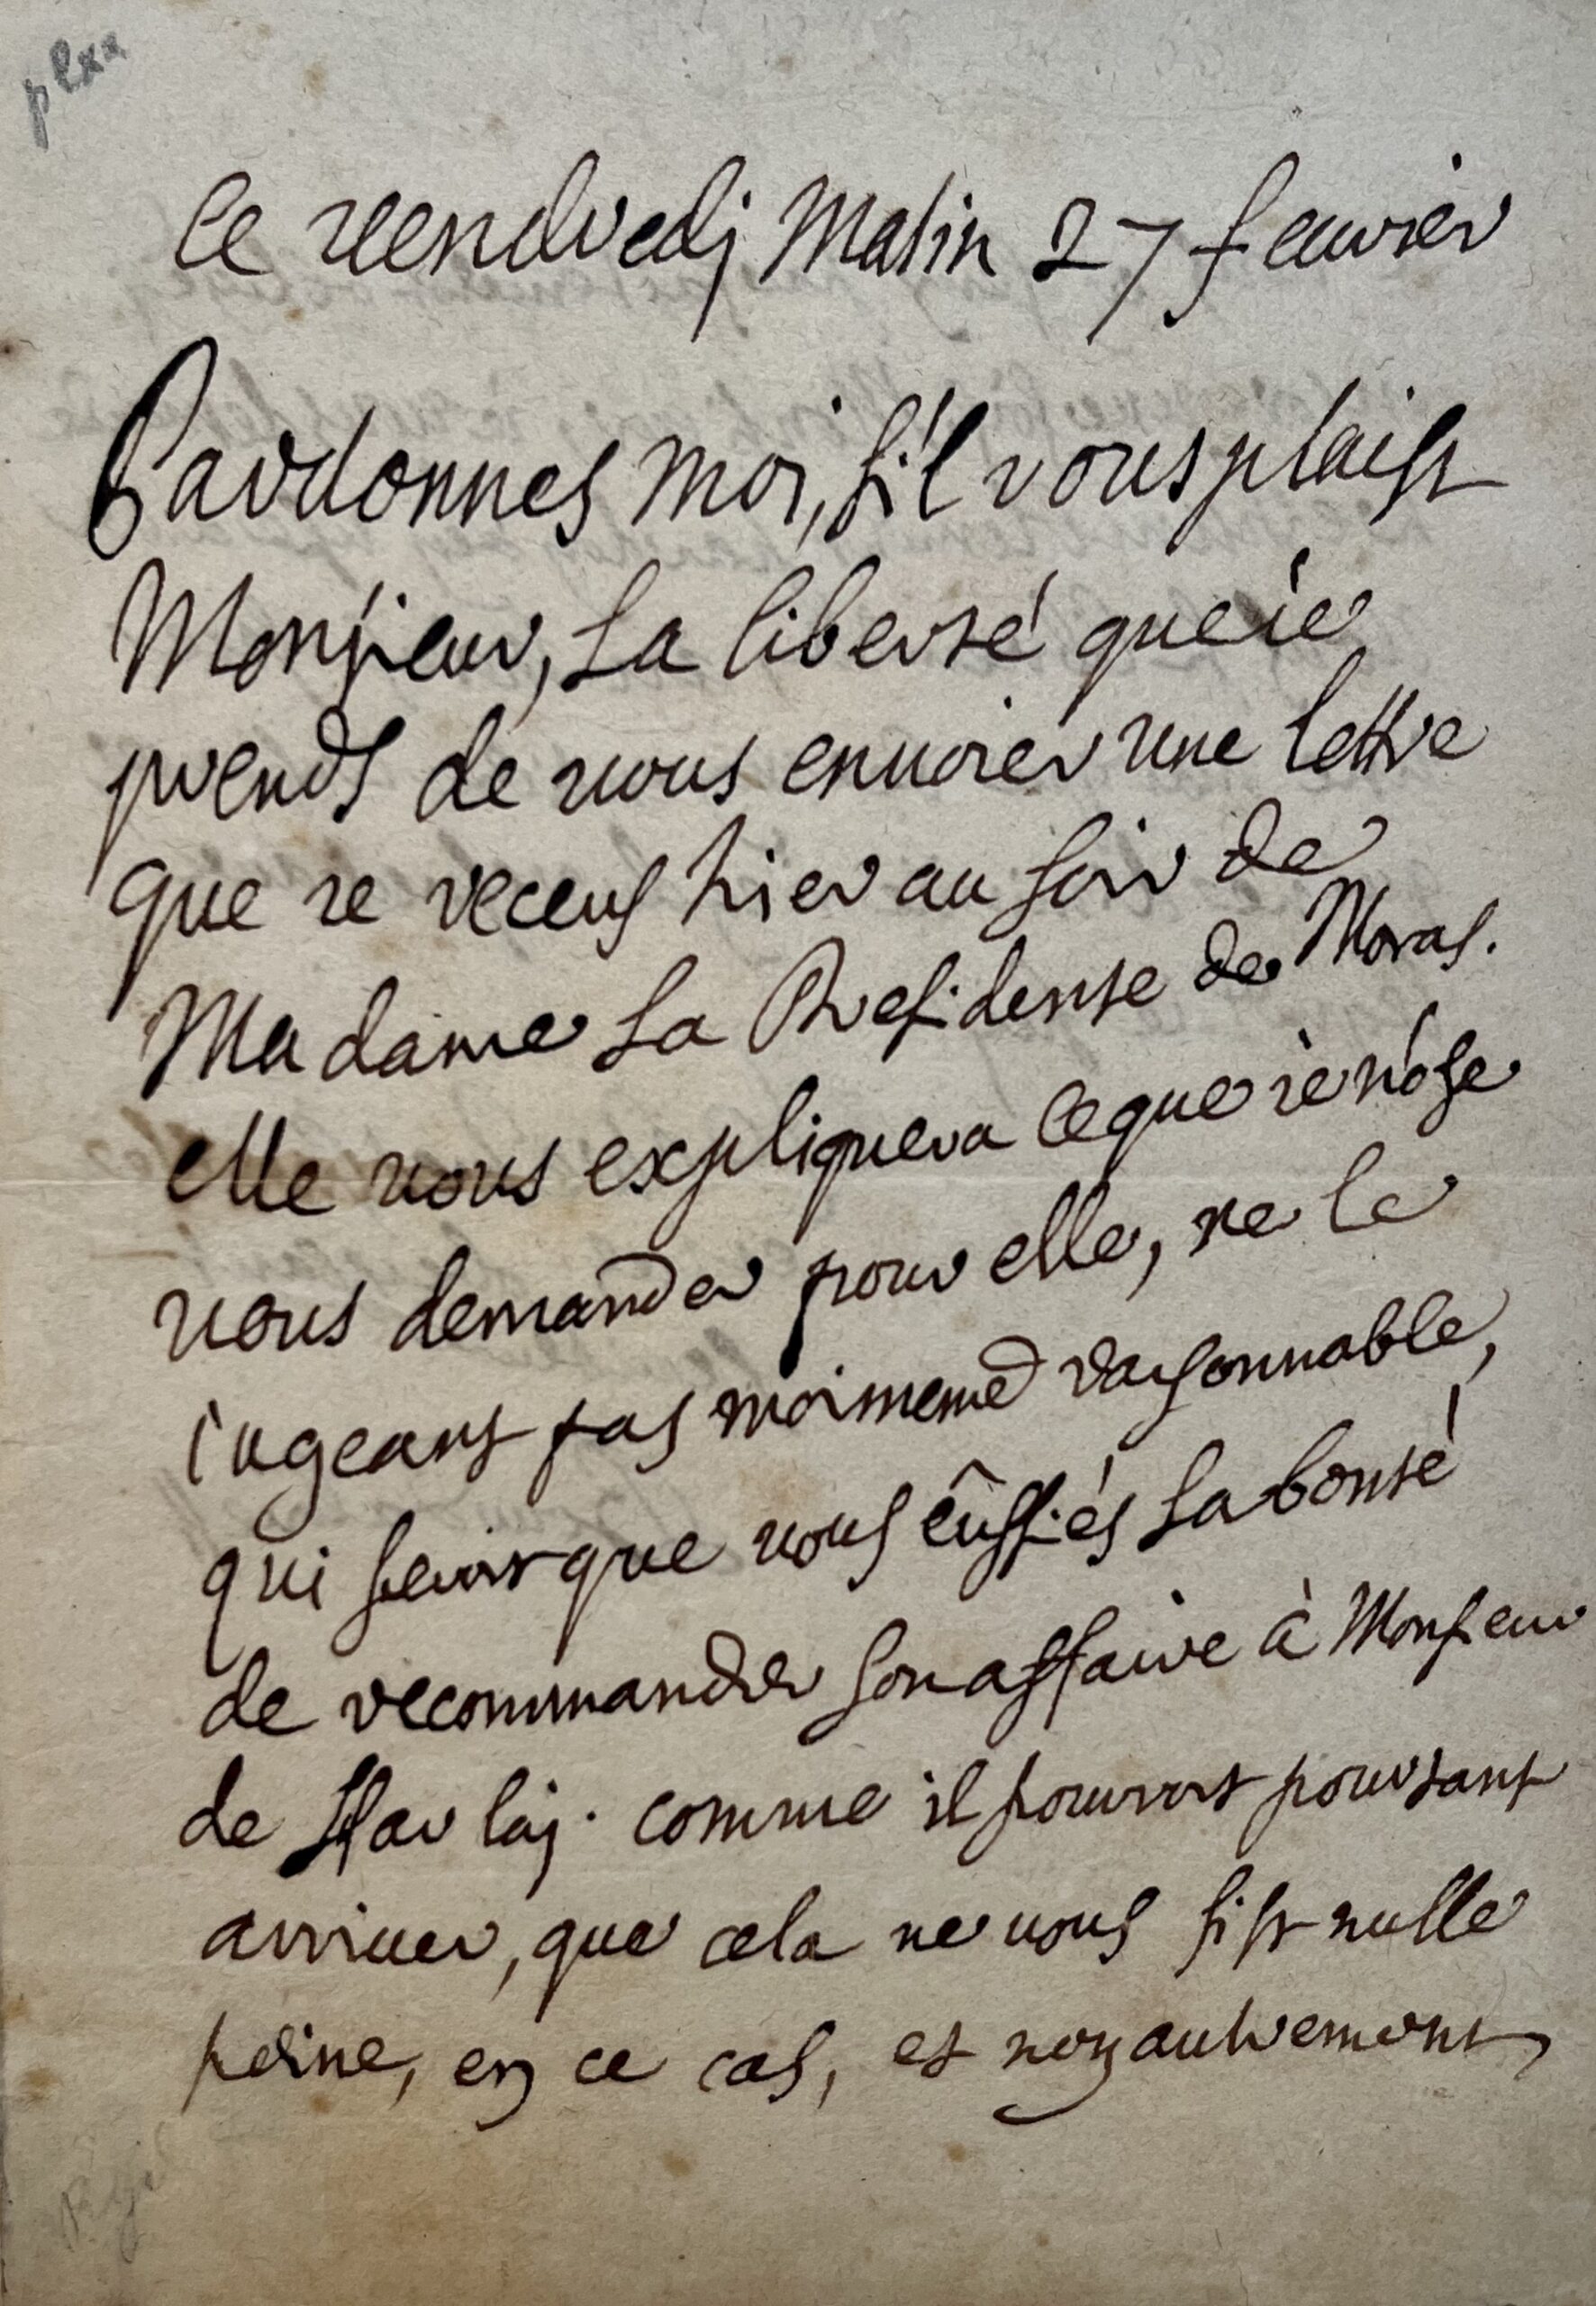 ce vendredj Matin 27 feurier
Pardonnes moi, s'il vous plaist
Monsieur, La liberté que ie
prends de uous enuoier une lettre
que ie receus hier au soir de
Madame La Presidente de Moras.
elle uous expliquera ce que ie n'ose
uous demander pour elle, ne le
iugeant pas moimeme raisonnable,
qui seroit que uous eûssiés La bonté
de recommander son affaire à Monsieur
de Harlaj. comme il pourroit pourtant
arriuer, que cela ne uous fist nulle
peine, en ce cas, et non autrement,